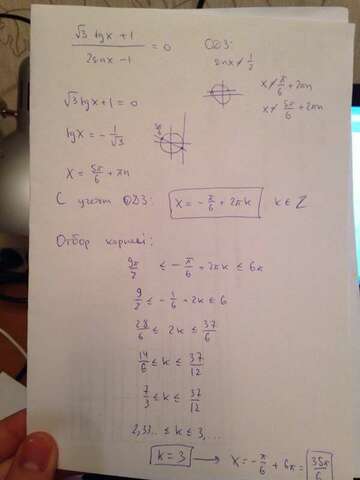 (√3 tgx + 1) / (2sinx - 1) = 0
ОДЗ:
sinx ≠ 1/2
x ≠ π/6 + 2πn
x ≠ 5π/6 + 2πn
√3 tgx + 1 = 0
tgx = -1/√3
x = 5π/6 + πn
С учетом ОДЗ: x = -π/6 + 2πk k ∈ Z
Отбор корней:
9π/2 ≤ -π/6 + 2πk ≤ 6π
9/2 ≤ -1/6 + 2k ≤ 6
28/6 ≤ 2k ≤ 37/6
14/6 ≤ k ≤ 37/12
7/3 ≤ k ≤ 37/12
2,33.. ≤ k ≤ 3,...
k = 3 → x = -π/6 + 6π = 35π/6